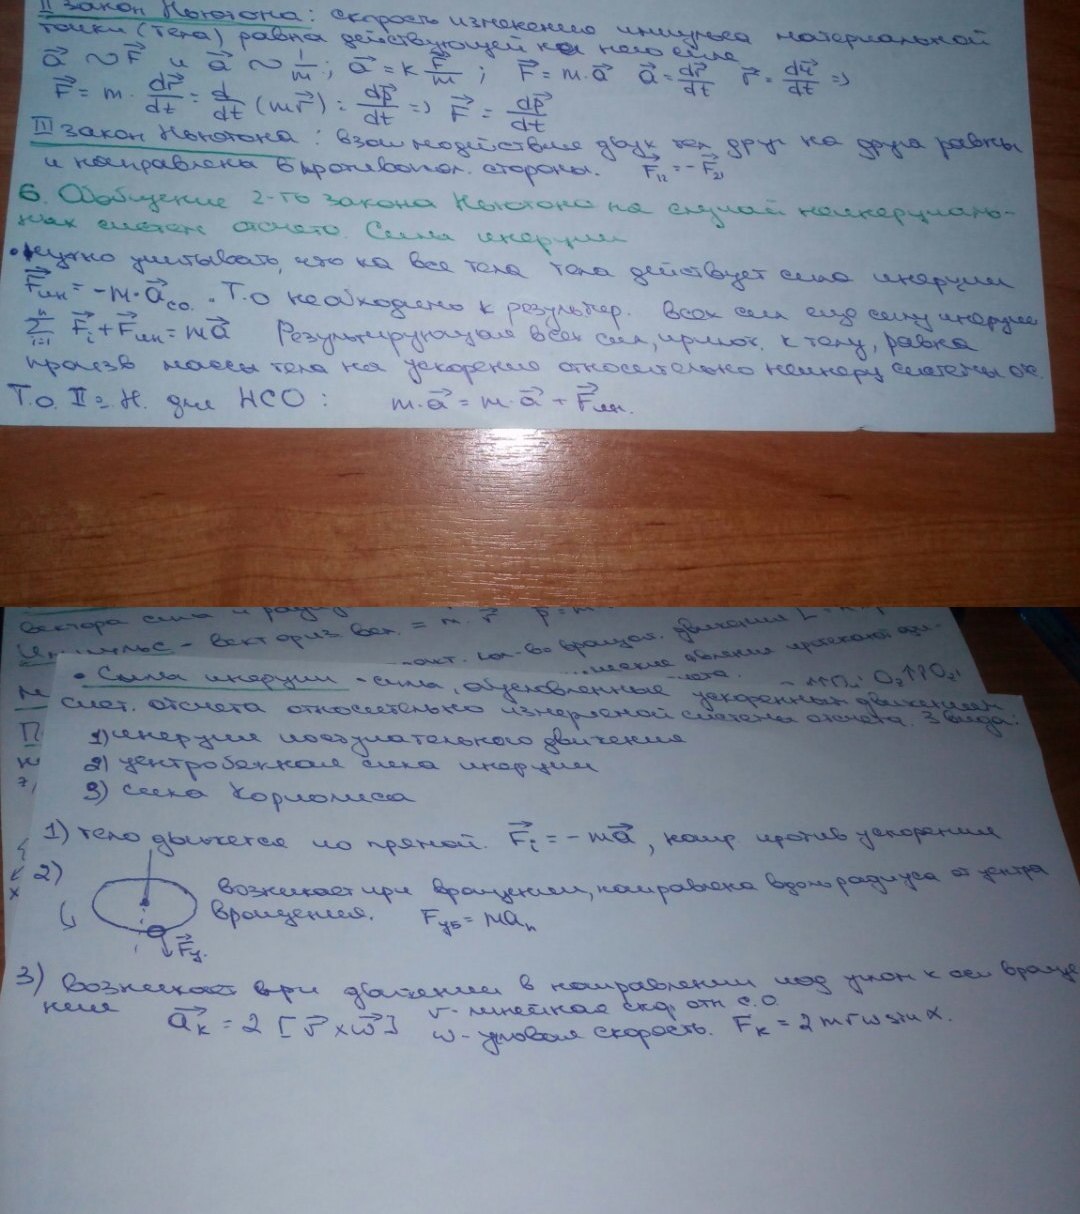 II закон Ньютона: скорость изменения импульса материальной
точки (тела) равна действующей на него силе
a⃗ ~ F⃗ и a⃗ ~ 1/m; a⃗ = k F⃗/m; F⃗ = m·a⃗ a⃗ = dv⃗/dt v⃗ = du⃗/dt =>
F⃗ = m·dv⃗/dt = d/dt (mv⃗) = dp⃗/dt => F⃗ = dp⃗/dt
III закон Ньютона: взаимодействие двух тел друг на друга равны
и направлена в противопол. стороны. F⃗₁₂ = -F⃗₂₁
6. Обобщение 2-го закона Ньютона на случай неинерциаль-
ных систем отсчета. Сила инерции
• нужно учитывать, что на все тела тела действует сила инерции
F⃗ин = -m·a⃗со. Т.О необходимо к результир. всех сил еще силу инерции
n Σ i=1 F⃗i + F⃗ин = ma⃗ Результирующая всех сил, прилож. к телу, равна
произв массы тела на ускорение относительно неинерц системы отс.
Т.о. II з. Н. для НСО: m·a⃗ = m·a⃗ + F⃗ин.
вектора силы и
Импульс - вектор = m·v⃗ p = m
кол-во вращат. движения L =
явления протекают
O₂↑↑O₂'
• Сила инерции - сила, обусловленные ускоренным движением
сист. отсчета относительно измеряемой системы отсчета. 3 вида:
1) инерции поступательного движения
2) центробежная сила инерции
3) сила Кориолиса
1) тело движется по прямой. F⃗i = -ma⃗, напр против ускорения
2) возникает при вращении, направлена вдоль радиуса от центра
вращения. Fцб = maₙ
F⃗ц.
3) возникает при движении в направлении под углом к оси враще
ния v - линейная скор отн с.о
a⃗к = 2 [v⃗ × ω⃗] ω - угловая скорость. Fк = 2mvω sin α.